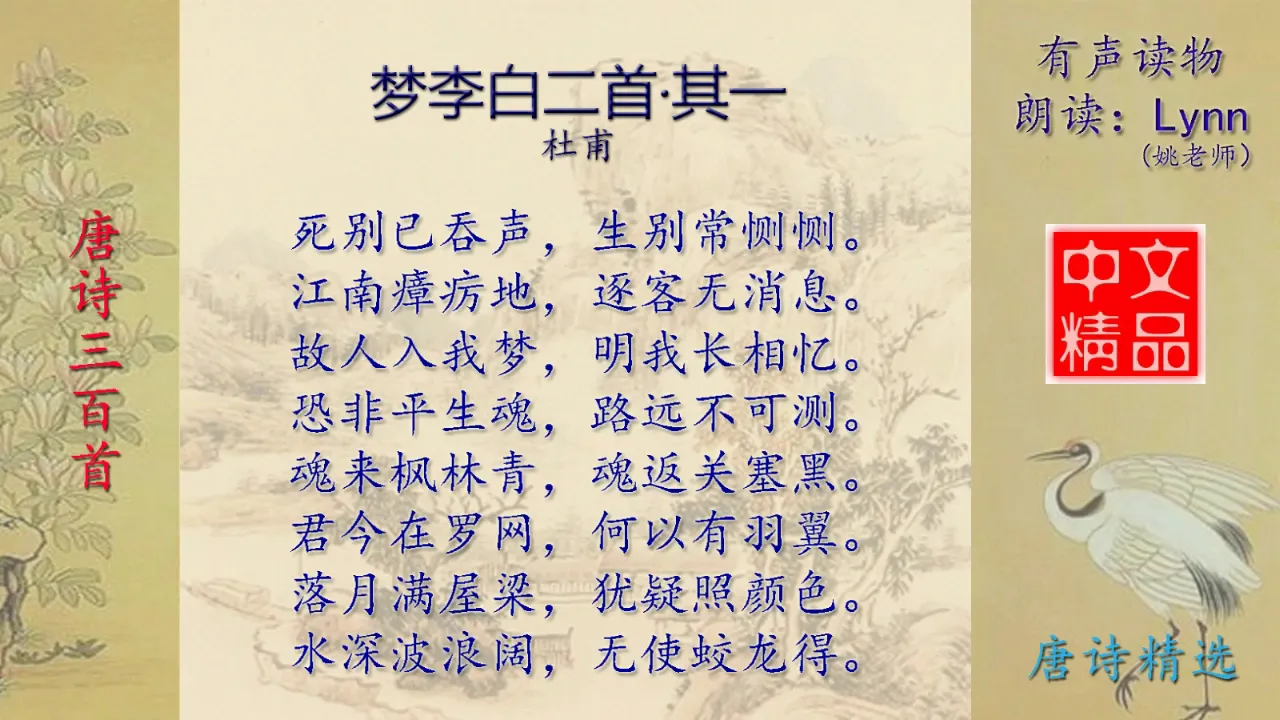 梦李白二首·其一
杜甫
死别已吞声，生别常恻恻。
江南瘴疠地，逐客无消息。
故人入我梦，明我长相忆。
恐非平生魂，路远不可测。
魂来枫林青，魂返关塞黑。
君今在罗网，何以有羽翼。
落月满屋梁，犹疑照颜色。
水深波浪阔，无使蛟龙得。
唐诗三百首
有声读物
朗读：Lynn
（姚老师）
中文
精品
唐诗精选